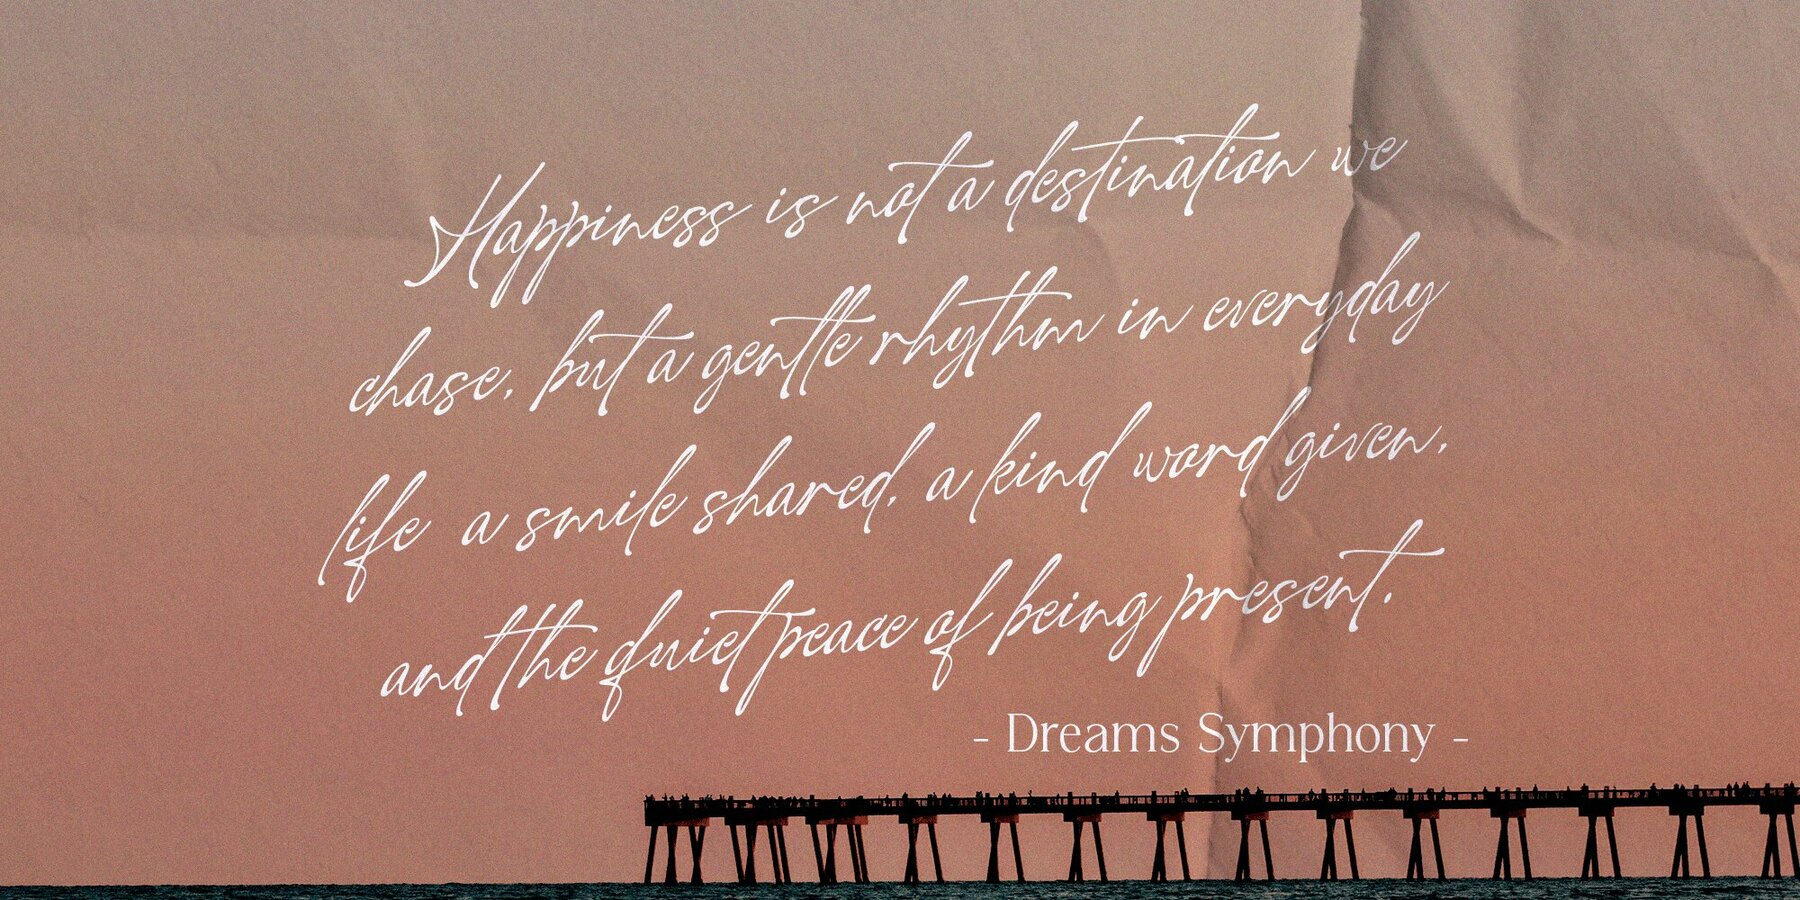 Happiness is not a destination we
chase, but a gentle rhythm in everyday
life a smile shared, a kind word given,
and the quiet peace of being present.
- Dreams Symphony -